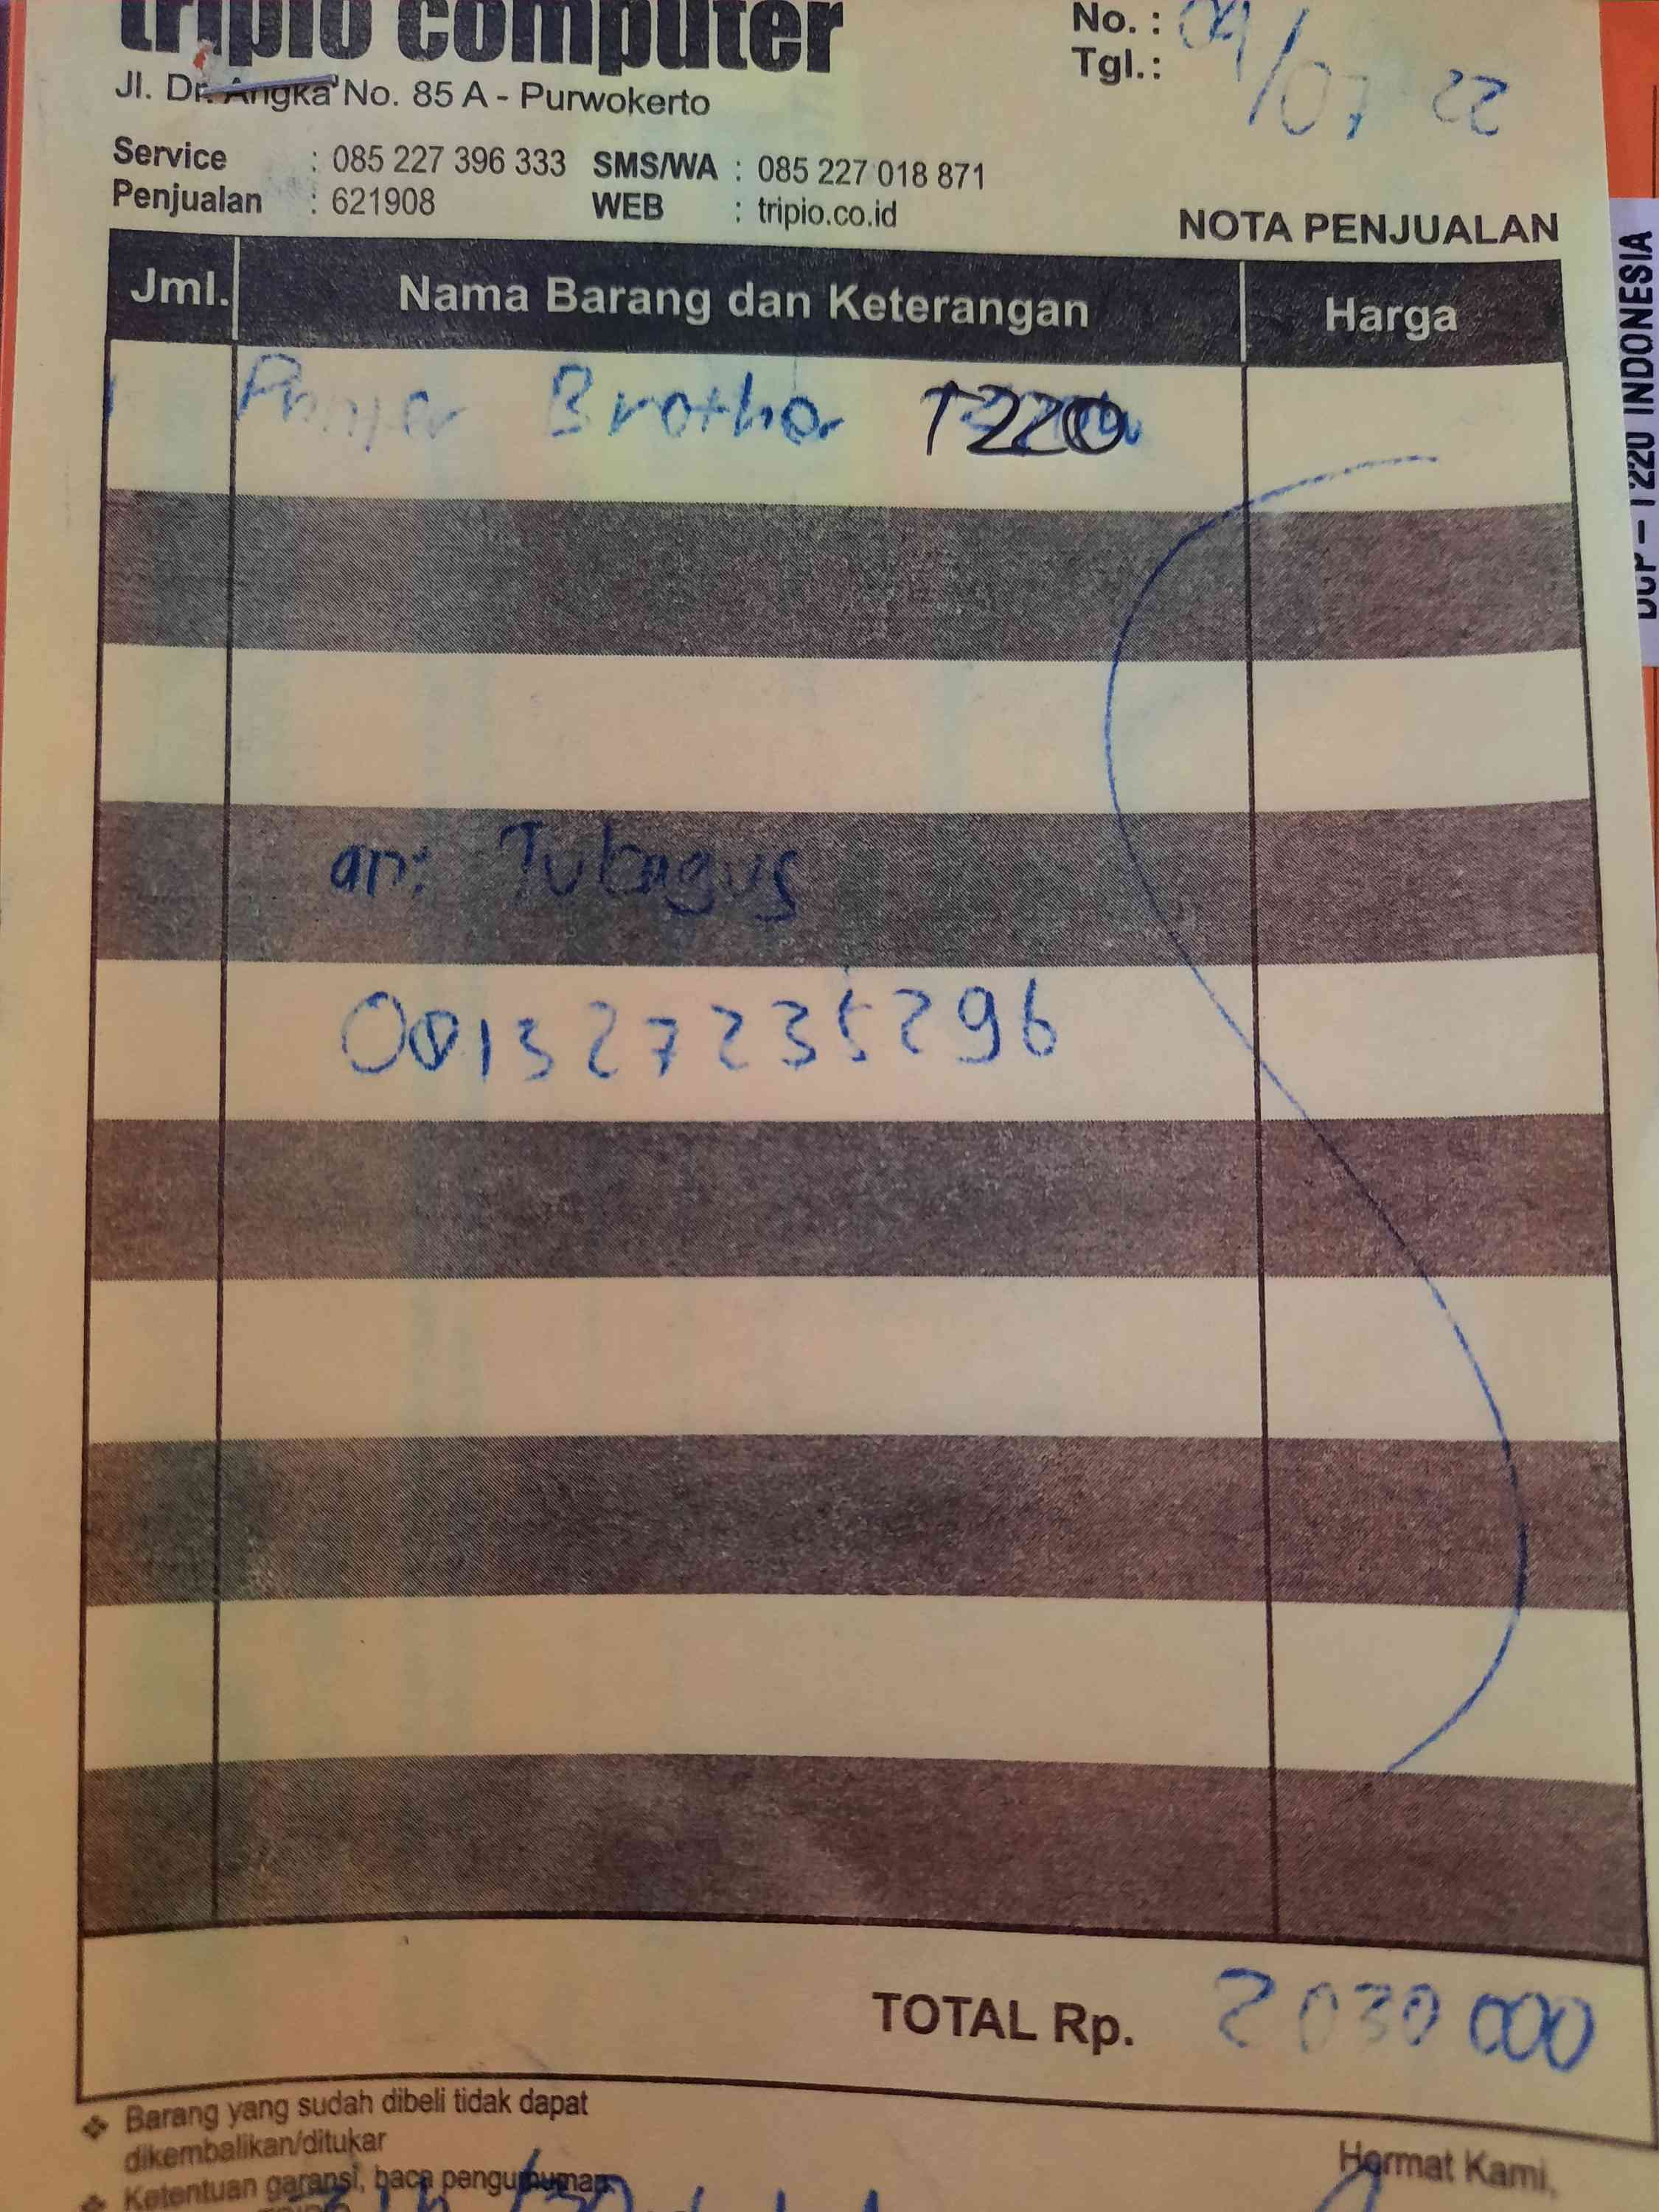 tripio computer
Jl. Dr. Angka No. 85 A - Purwokerto
No. : 09/07 22
Tgl.:
Service : 085 227 396 333 SMS/WA : 085 227 018 871
Penjualan : 621908 WEB : tripio.co.id
NOTA PENJUALAN
Jml. Nama Barang dan Keterangan Harga
1 Printer Brother T220
an: Tubagus
081327235296
TOTAL Rp. 2 030 000
Barang yang sudah dibeli tidak dapat
dikembalikan/ditukar
Ketentuan garansi, baca pengumuman.
Hormat Kami,
DCP – T220 INDONESIA